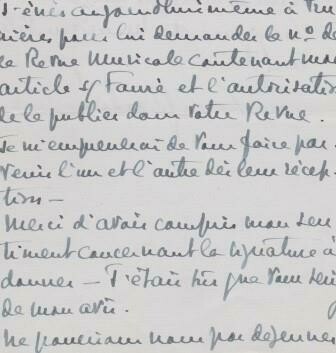 s-écris aujourd'hui même à Pru
nières pour lui demander le n° de
la Revue Musicale contenant mon
article s/ Fauré et l'autorisation
de le publier dans votre Revue.
Je m'empresserai de vous faire par
venir l'un et l'autre dès leur récep
tion —
Merci d'avoir compris mon sen
timent concernant la signature à
donner — J'étais sûr que vous seri
de mon avis.
Ne pourrions nous pas déjeuner